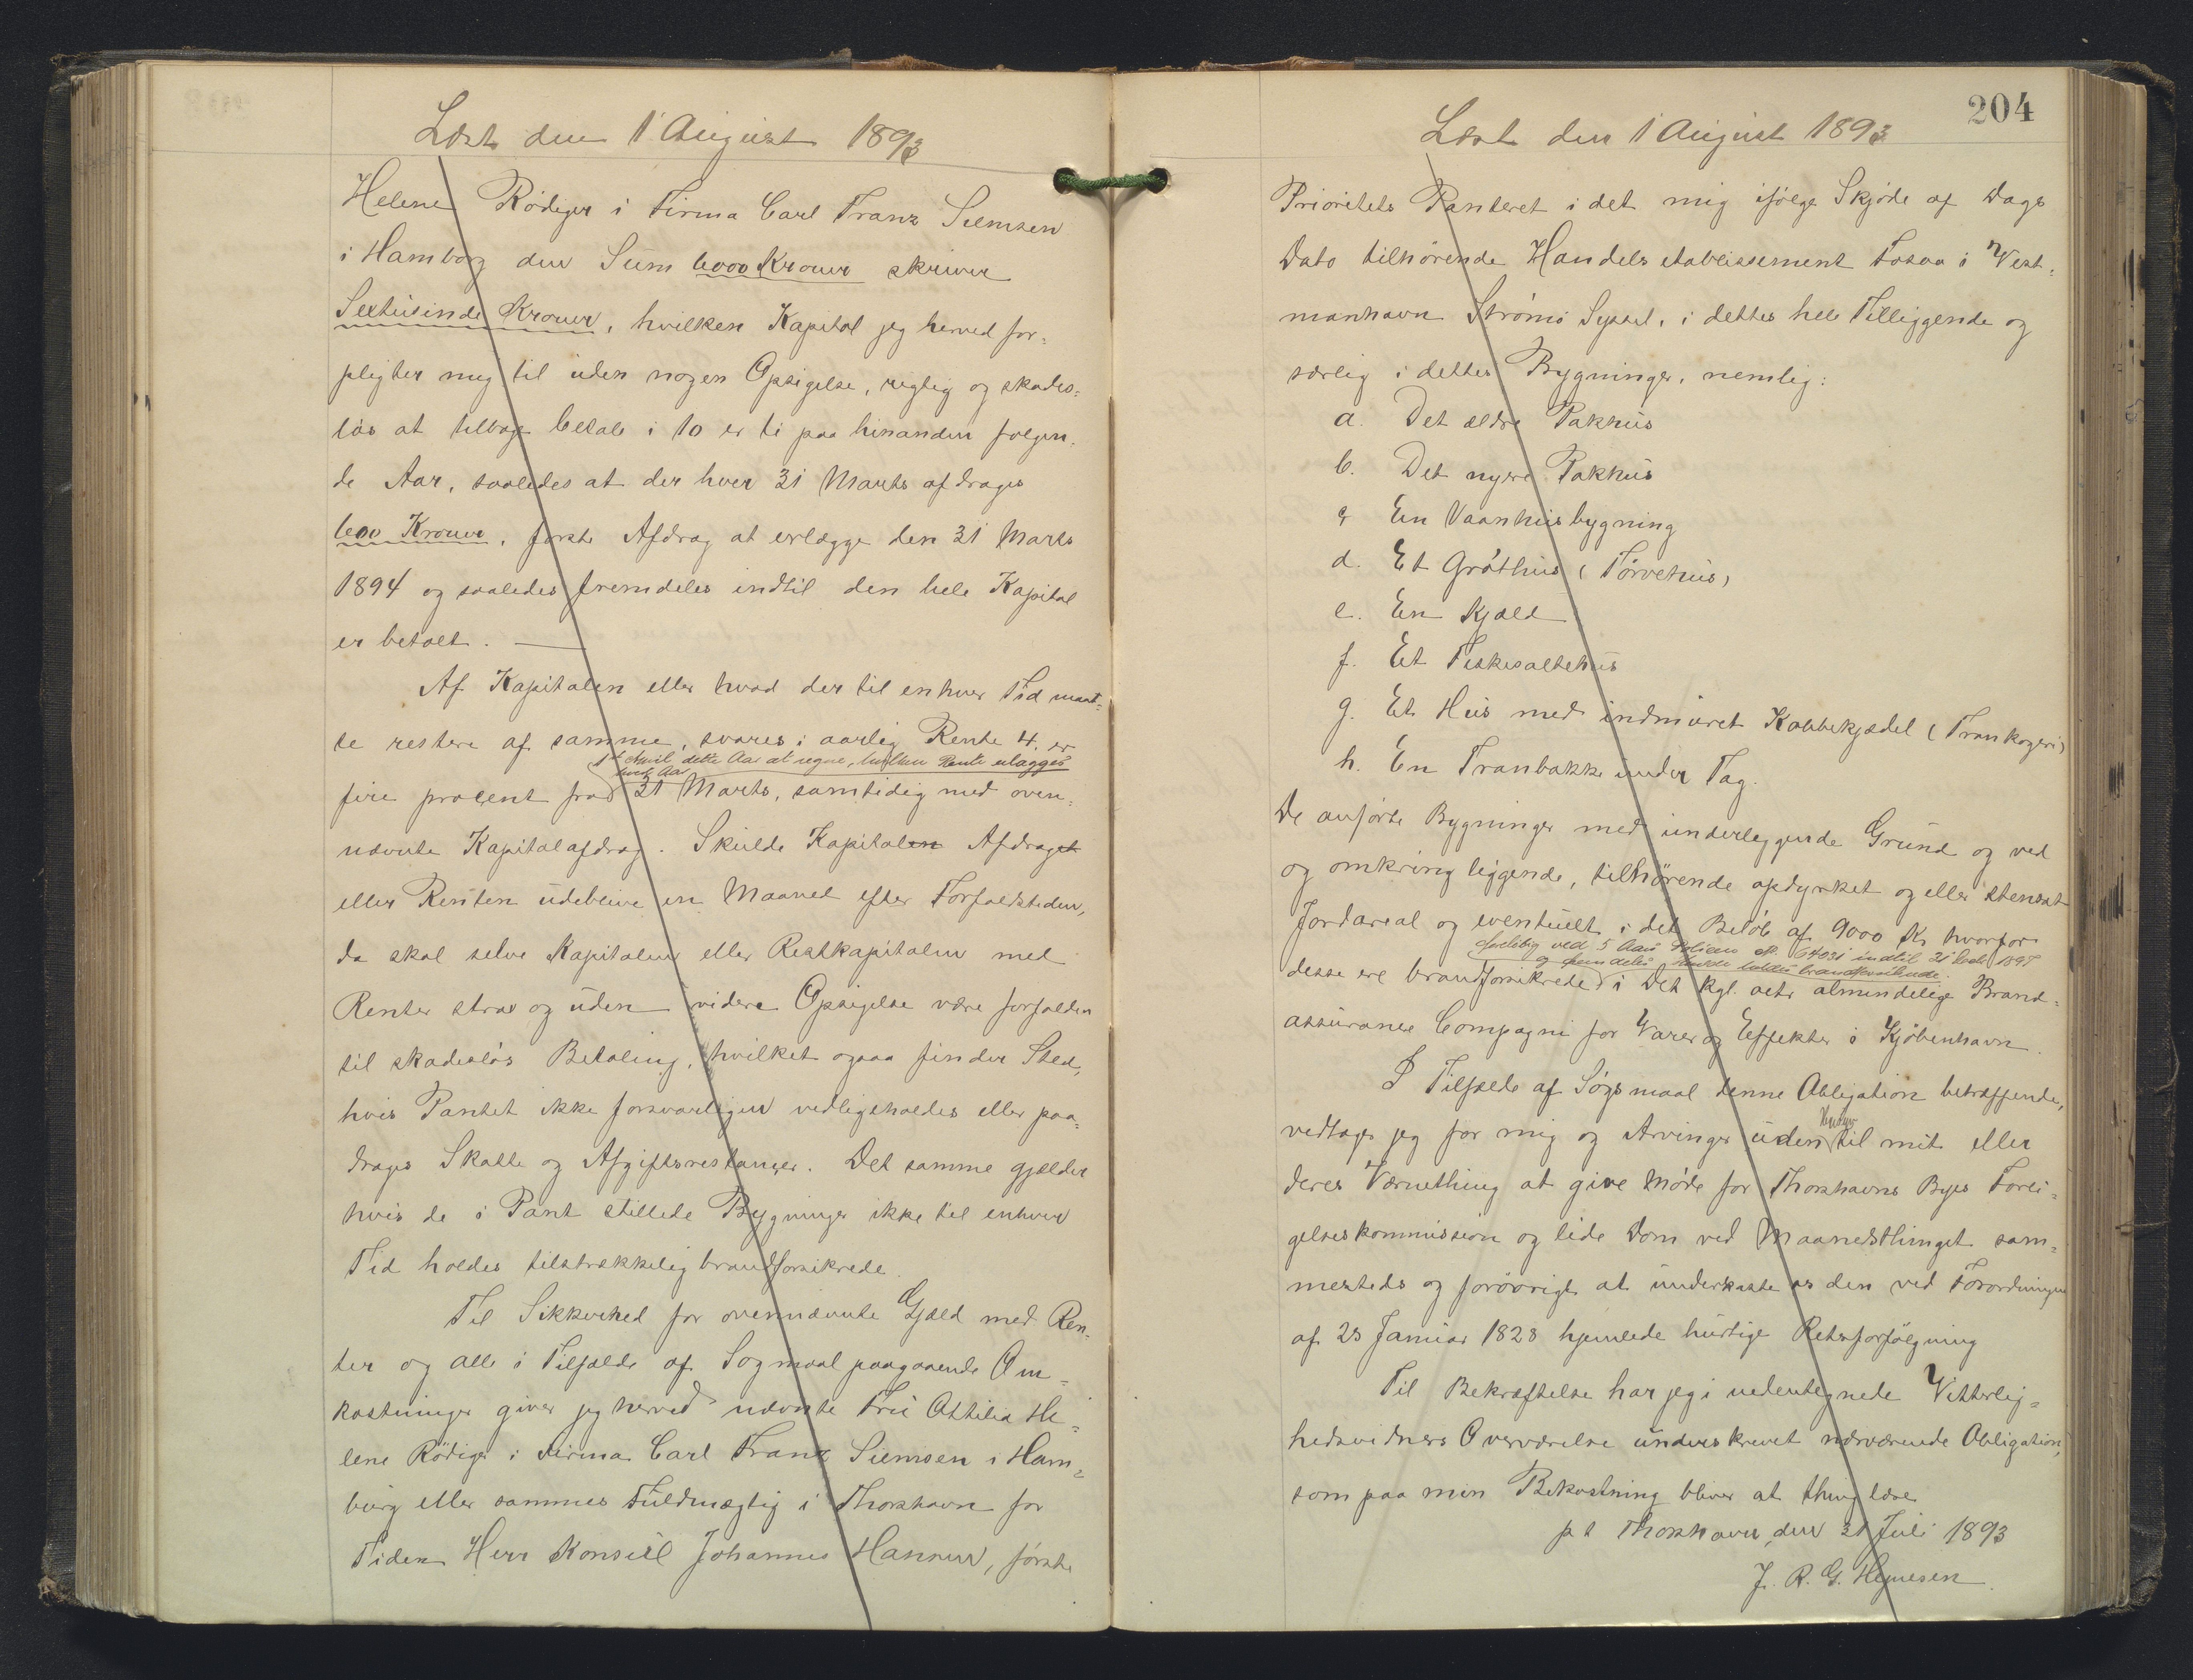 Læst den 1 August 1893
Helene Rödiger i Firma Carl Franz Siemsen
i Hamborg den Sum 6000 Kroner skriver
Sextusinde Kroner, hvilken Kapital jeg herved for-
pligter mig til uden nogen Opsigelse, rigtig og skades-
løs at tilbage betale i 10 er ti paa hinanden følgen-
de Aar, saaledes at der hver 31 Marts afdrages
600 Kroner, første Afdrag at erlægge den 31 Marts
1894 og saaledes fremdeles indtil den hele Kapital
er betalt. —
Af Kapitalen eller hvad der til enhver Tid maat-
te restere af samme, svares i aarlig Rente 4. er
1st April dette Aar at regne, hvilken Rente erlægges
hvert Aar
fire procent fra 31 Marts, samtidig med oven-
nævnte Kapitalafdrag. Skulde Kapitalen Afdraget
eller Renten udeblive en Maaned efter Forfaldstiden,
da skal selve Kapitalen eller Restkapitalen med
Renter strax og uden videre Opsigelse være forfalden
til skadesløs Betaling, hvilket ogsaa finder Sted,
hvis Pantet ikke forsvarligen vedligeholdes eller paa-
drages Skatte og Afgiftsrestancer. Det samme gjælder
hvis de i Pant stillede Bygninger ikke til enhver
Tid holdes tilstrækkelig brandforsikrede.
Til Sikkerhed for ovennævnte Gjæld med Ren-
ter og alle i Tilfælde af Sogmaal paagaaende Om-
kostninger giver jeg herved nævnte Frü Ottilia He-
lene Rödiger i Firma Carl Franz Siemsen i Ham-
burg eller sammes Fuldmægtig i Thorshavn for
Tiden Herr Konsül Johannes Hansen, første
204
Læst den 1 August 1893
Prioritets Panteret i det mig ifølge Skjøde af Dags
Dato tilhørende Handelsetablissement Fosaa i Vest-
manhavn Strømø Syssel, i dettes hele Tilliggende og
særlig i dettes Bygninger, nemlig:
a. Det ældre Pakhus
b. Det nyere Pakhus
c En Vaanhusbygning
d. Et Gróthus (Tørvehus)
e. En Kjæld
f. Et Fiskesaltehus
g. Et Hus med indmuret Kobbekjedel (Trankogeri)
h. En Tranbakke under Tag.
De anførte Bygninger med underliggende Grund og ved
og omkring liggende, tilhørende opdyrket og eller stensat
Jordareal og eventuelt i det Beløb af 9000 Kr hvorfor
foreløbig ved 5 Aars Policen № 64031 indtil 1897
og fremdeles burde holdes brandforsikrede.
desse ere brandforsikrede i Det kgl. octr almindelige Brand-
assurance Compagni for Varer og Effekter i Kjøbenhavn.
I Tilfælde af Søgsmaal denne Obligation betræffende,
vedtager jeg for mig og Arvinger uden Hensyn til mit eller
deres Værnething at give Møde for Thorshavns Byes Forli-
gelseskommission og lide Dom ved Maanedsthinget sam-
mesteds og forøvrigt at underkaste os den ved Forordningen
af 25 Januar 1828 hjemlede hurtige Retsforfølgning
Til Bekræftelse har jeg i nedentegnede Vitterlig-
hedsvidners Overværelse underskrevet nærværende Obligation,
som paa min Bekostning bliver at thinglæse
p t Thorshavn, den 31 Juli 1893
J. R. G. Hejnesen